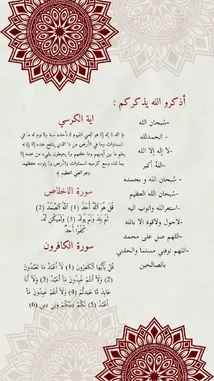 أذكرو الله يذكركم :
-سُبحان الله
- الحمدلله
-لا إله إلا الله
-اللهُ أكبر
- سُبحان الله و بحمده
- سُبحان الله العظيم
-استغرالله واتوب اليه
-لاحول ولاقوة الا بالله
-اللهم صل على محمد
-اللهم توفني مسلما والحقني
بالصالحين
اية الكرسي
﴿ الله لا إله إلا هو الحي القيوم لا تأخذه سنة ولا نوم له ما في
السماوات وما في الأرض من ذا الذي يشفع عنده إلا بإذنه
يعلم ما بين أيديهم وما خلفهم ولا يحيطون بشيء من علمه إلا
بما شاء وسع كرسيه السماوات والأرض ولا يئوده حفظهما
وهو العلي العظيم ﴾
سورة الاخلاص
قُلْ هُوَ اللَّهُ أَحَدٌ (1) اللَّهُ الصَّمَدُ (2)
لَمْ يَلِدْ وَلَمْ يُولَدْ (3) وَلَمْ يَكُن لَّهُ
كُفُوًا أَحَدٌ
سورة الكافرون
قُلْ يَا أَيُّهَا الْكَافِرُونَ (1) لَا أَعْبُدُ مَا تَعْبُدُونَ
(2) وَلَا أَنتُمْ عَابِدُونَ مَا أَعْبُدُ (3) وَلَا أَنَا
عَابِدٌ مَّا عَبَدتُّمْ (4) وَلَا أَنتُمْ عَابِدُونَ مَا
أَعْبُدُ (5) لَكُمْ دِينُكُمْ وَلِيَ دِينِ (6)